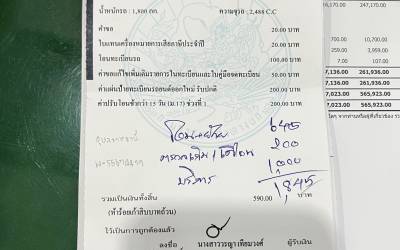 น้ำหนักรถ : 1,800 กก. ความจุรถ : 2,488 C.C
ค่าขอ 20.00 บาท
ใบแทนเครื่องหมายการเสียภาษีประจำปี 20.00 บาท
โอนทะเบียนรถ 100.00 บาท
ค่าขอแก้ไขเพิ่มเติมรายการในทะเบียนและใบคู่มือจดทะเบียน 50.00 บาท
ค่าแผ่นป้ายทะเบียนรถยนต์ออกใหม่ รับปกติ 200.00 บาท
ค่าปรับโอนช้ากว่า 15 วัน (ม.17) ช่วงที่ 1 200.00 บาท
645
200
บริการ 1,000
1,845
รวมเป็นเงินทั้งสิ้น 590.00 บาท
(ห้าร้อยเก้าสิบบาทถ้วน)
ไว้เป็นการถูกต้องแล้ว
ลงชื่อ นางสาววรญา เทียมวงศ์ ผู้รับเงิน
16,170.00 247,170.00
700.00 10,700.00
259.00 3,959.00
7.00 107.00
7,136.00 261,936.00
7,136.00 261,936.00
7,023.00 565,923.00
7,023.00 565,923.00